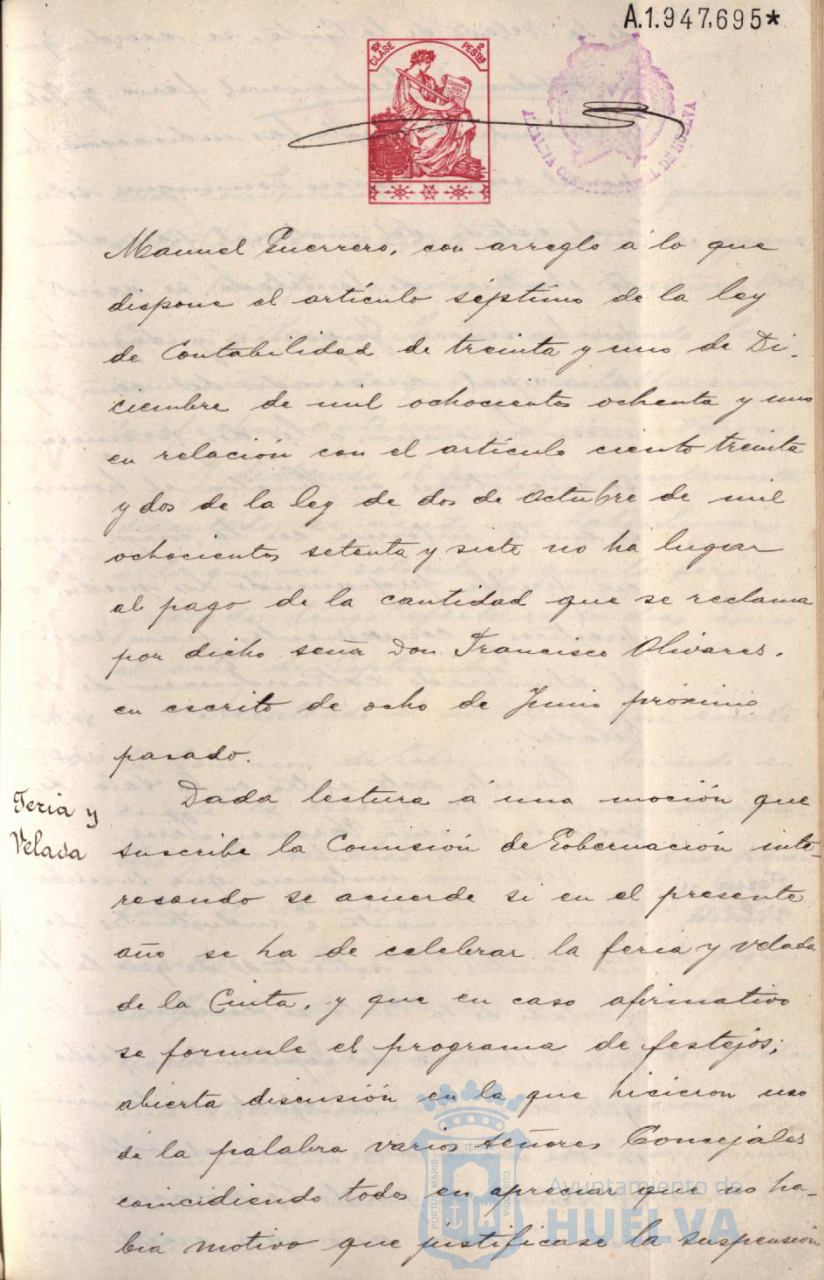 A.1.947,695*
10ª CLASE 2 PESTAS
ALCALDIA CONSTITUCIONAL DE HUELVA
Manuel Guerrero, con arreglo á lo que
dispone el artículo séptimo de la ley
de Contabilidad de treinta y uno de Di-
ciembre de mil ochocientos ochenta y uno
en relación con el artículo ciento treinta
y dos de la ley de dos de Octubre de mil
ochocientos setenta y siete no ha lugar
al pago de la cantidad que se reclama
por dicho señor Don Francisco Olivares.
en escrito de ocho de Junio próximo
pasado.
Feria y
Velada
Dada lectura á una moción que
suscribe la Comisión de Gobernación inte-
resando se acuerde si en el presente
año se ha de celebrar la feria y velada
de la Cinta, y que en caso afirmativo
se formule el programa de festejos;
abierta discusión en la que hicieron uso
de la palabra varios señores Concejales
coincidiendo todos en apreciar que no ha-
bía motivo que justificase la suspensión
Ayuntamiento de
HUELVA